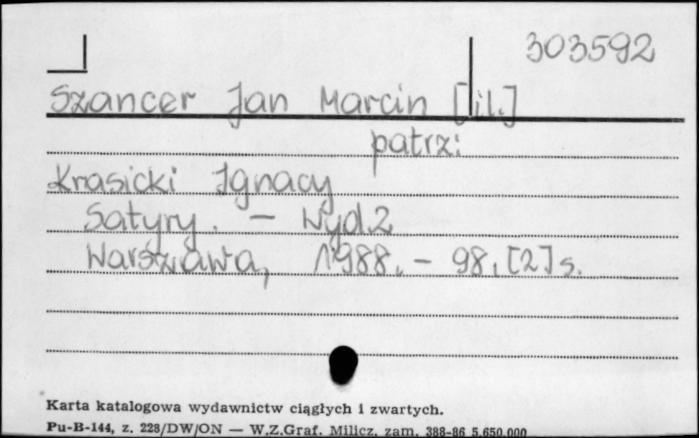 303592
Szancer Jan Marcin [il.]
patrz:
Krasicki Ignacy
Satyry. - Wyd. 2
Warszawa, 1988. - 98, [2] s.
Karta katalogowa wydawnictw ciągłych i zwartych.
Pu-B-144, z. 228/DW/ON — W.Z.Graf. Milicz, zam. 388-86 5.650.000